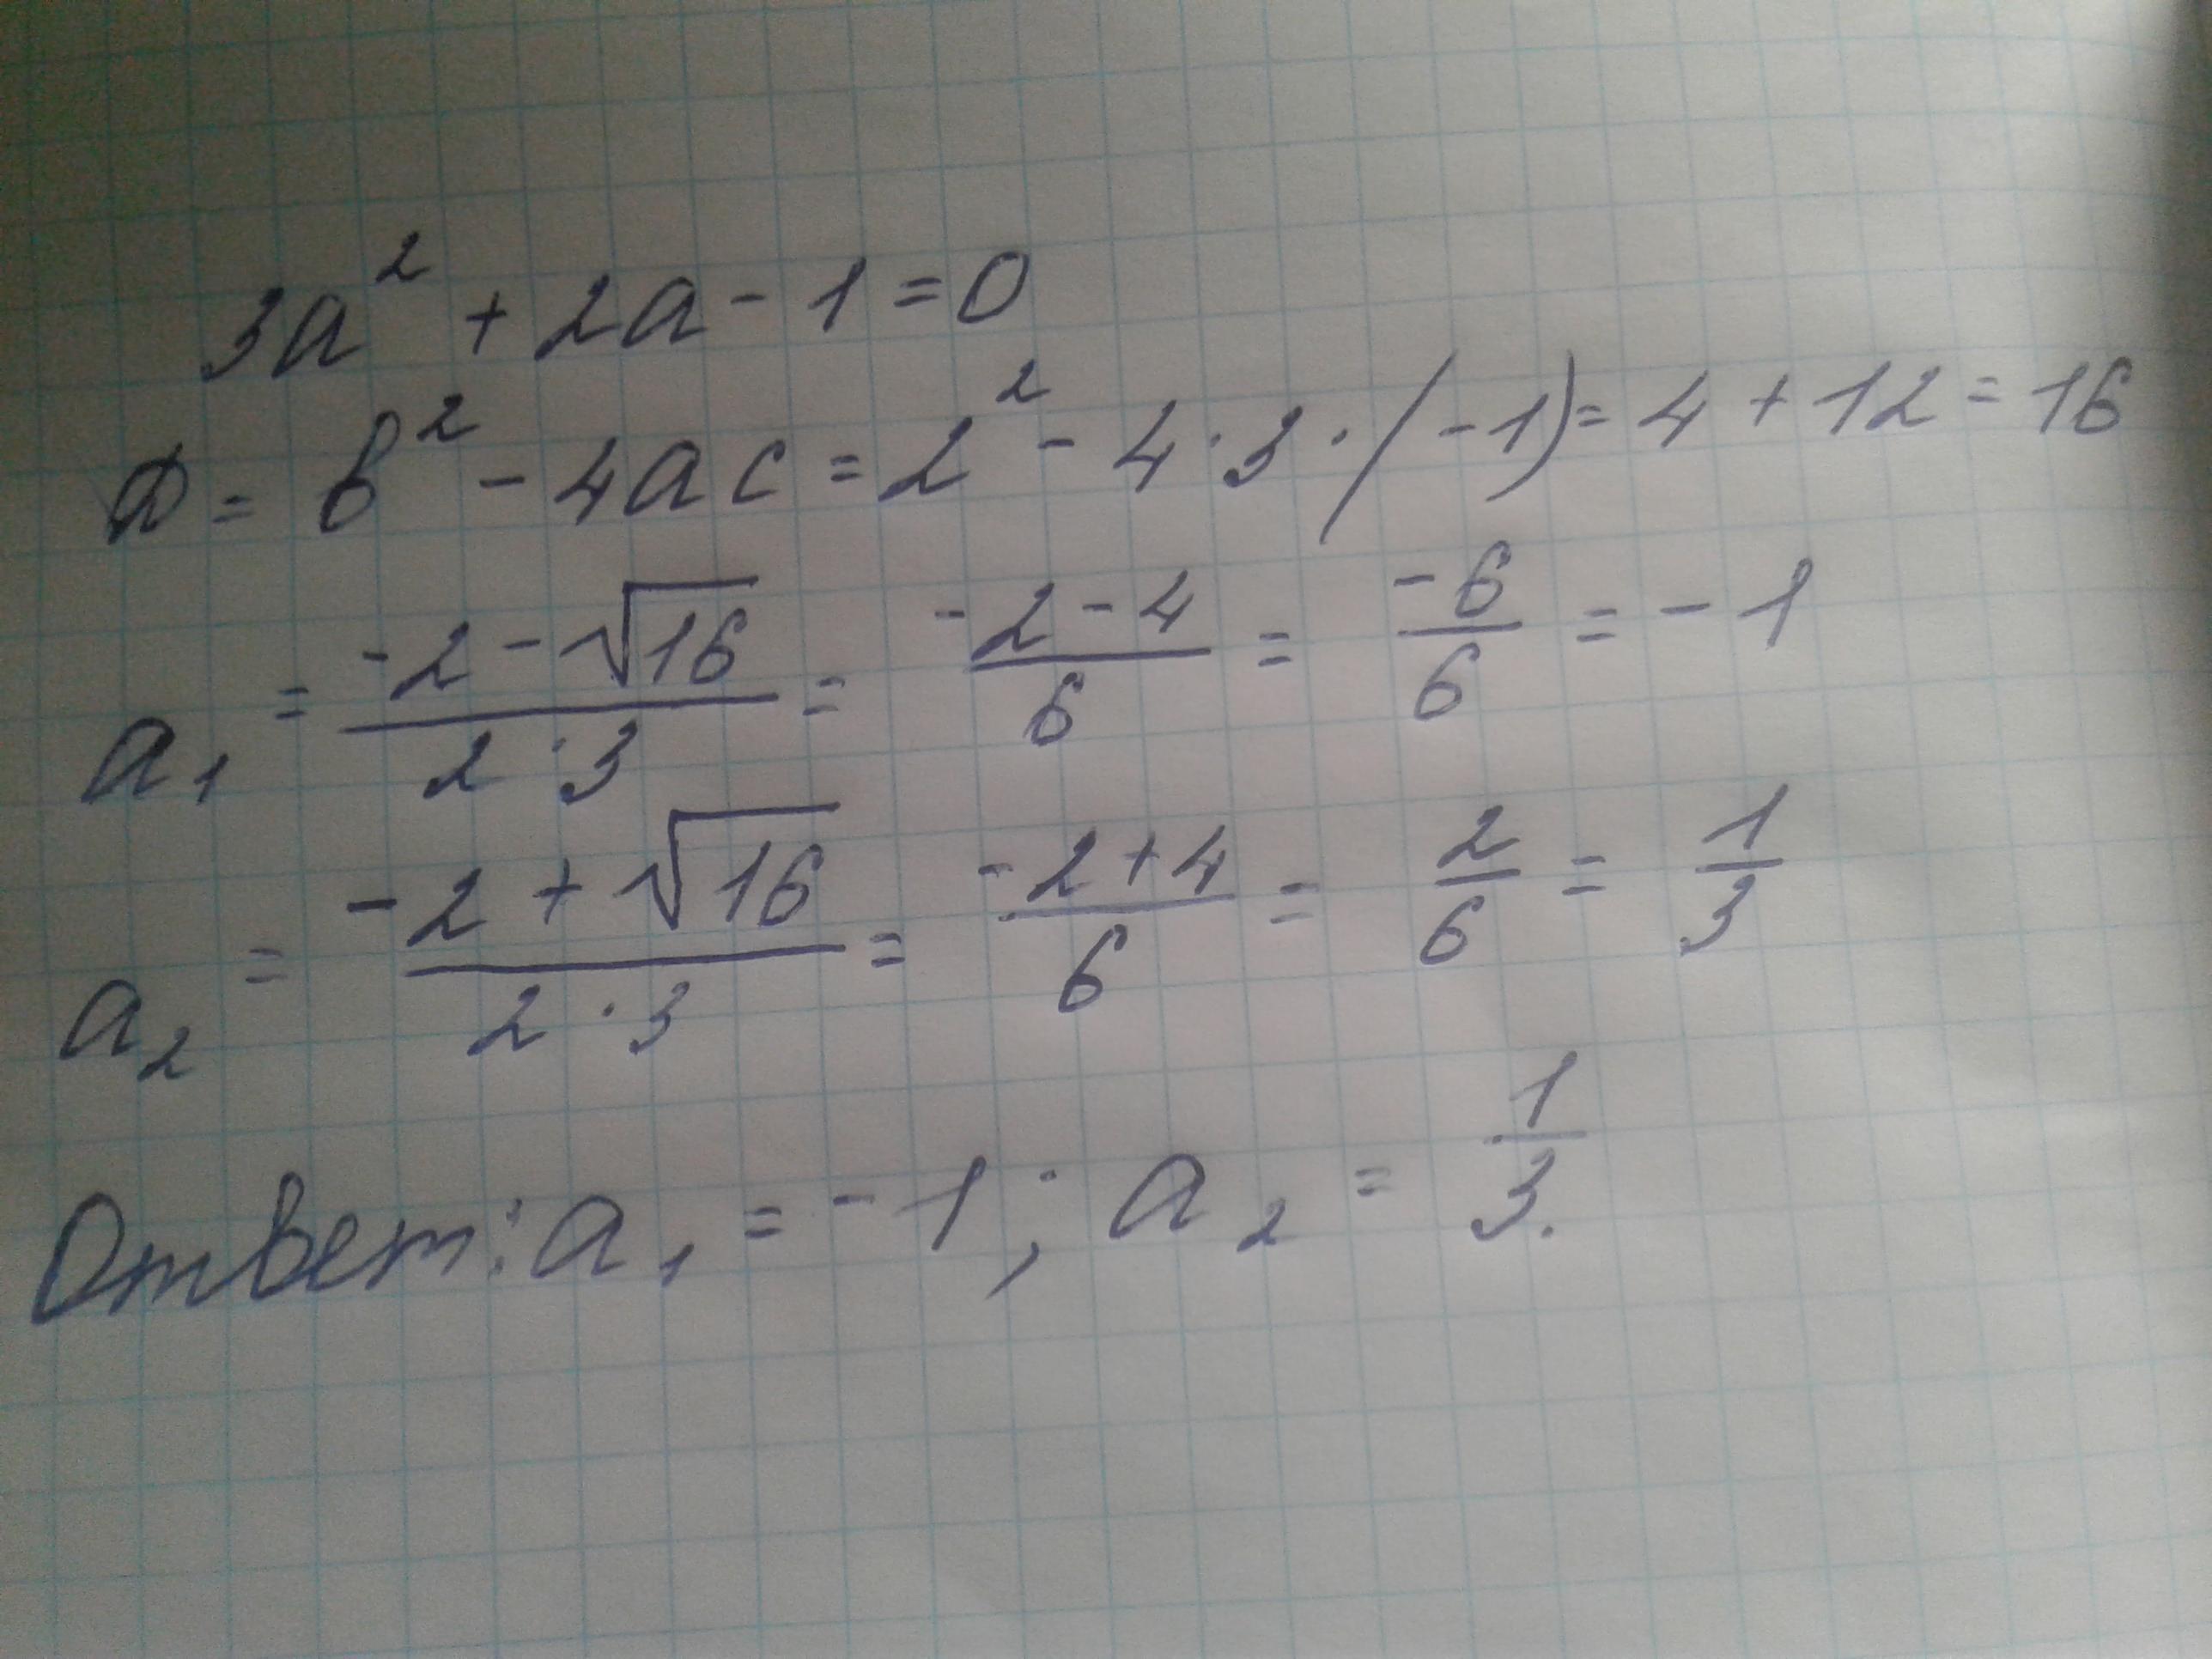 3a² + 2a - 1 = 0
D = b² - 4ac = 2² - 4 · 3 · (-1) = 4 + 12 = 16
a₁ = (-2 - √16)/(2 · 3) = (-2 - 4)/6 = -6/6 = -1
a₂ = (-2 + √16)/(2 · 3) = (-2 + 4)/6 = 2/6 = 1/3
Ответ: a₁ = -1; a₂ = 1/3.